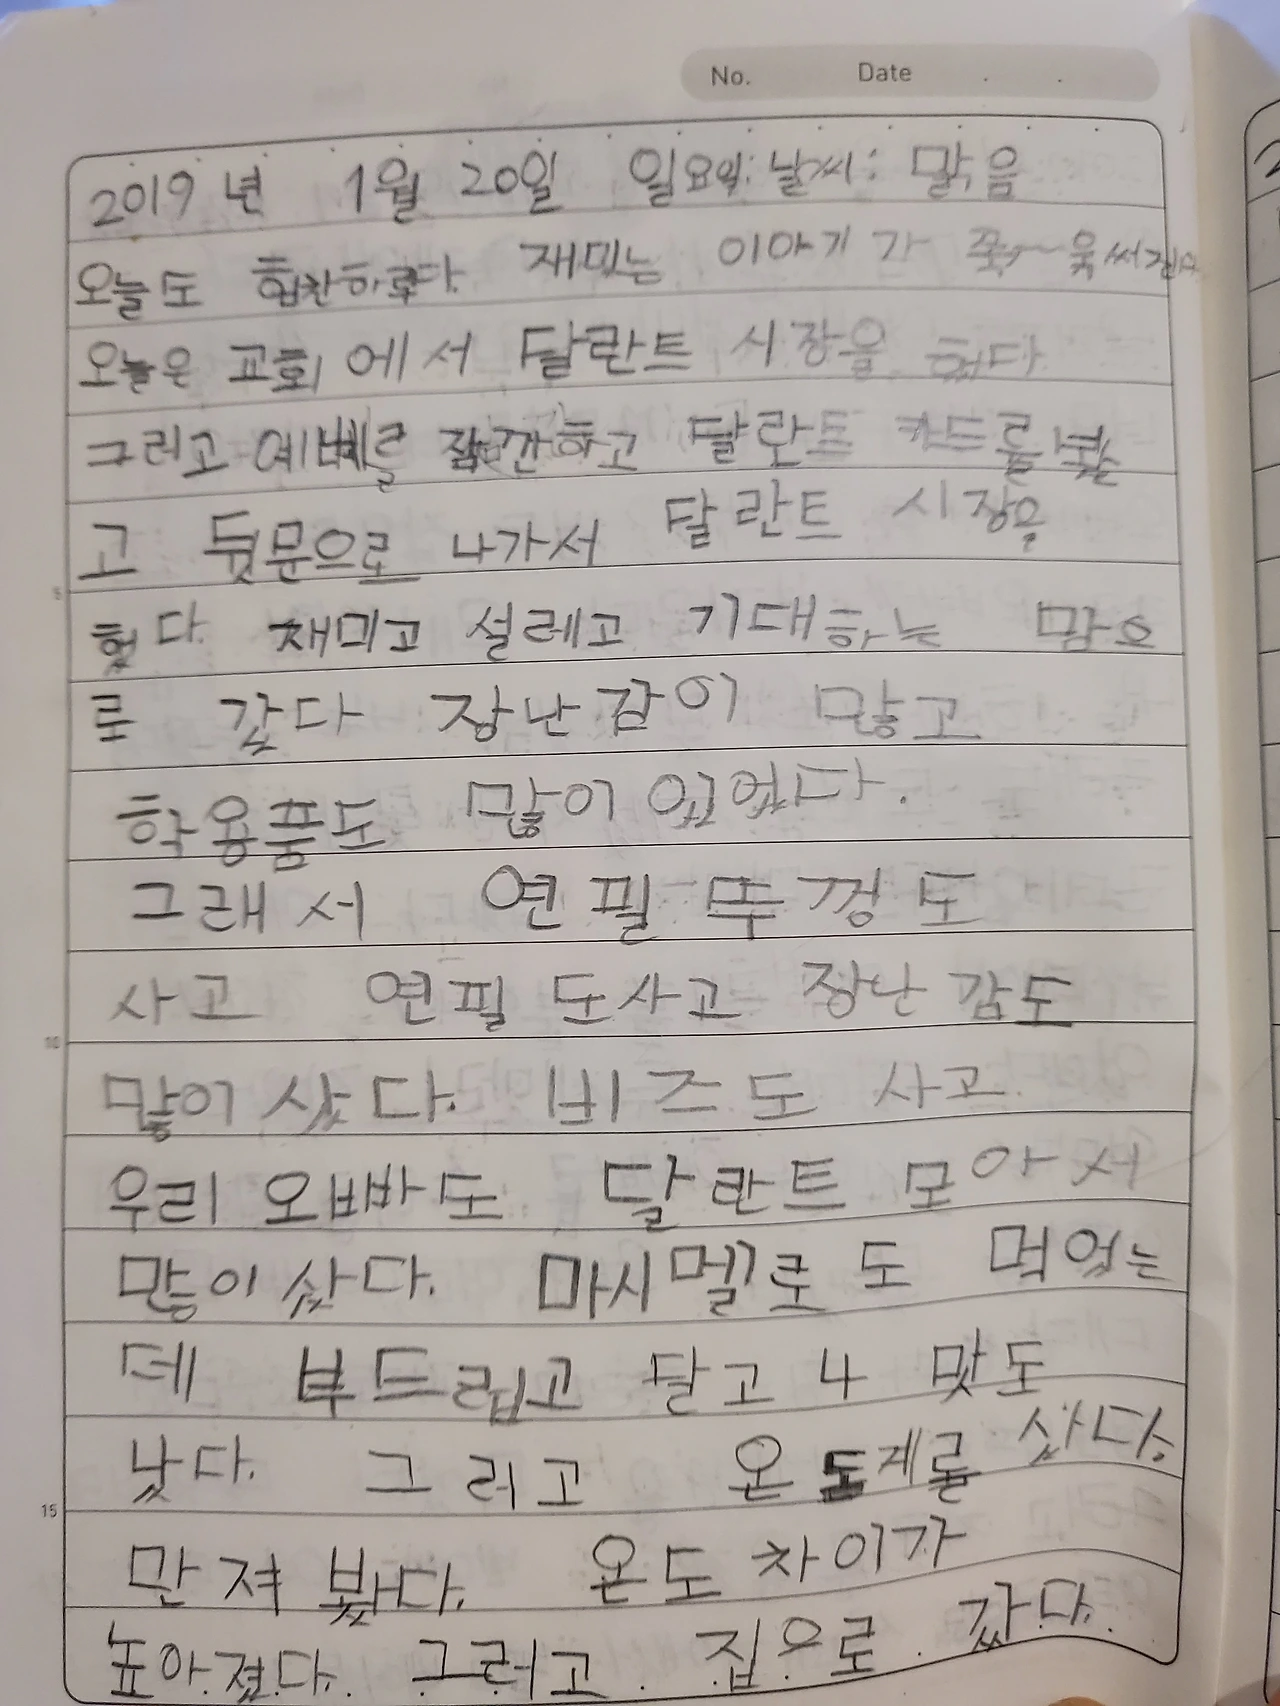 No. Date . .
2019년 1월 20일 일요일: 날씨: 맑음
오늘도 힘찬하루다. 재미는 이야기가 쭉~욱써진다
오늘은 교회에서 달란트 시장을 했다
그리고 예빼를 잠깐하고 달란트 카드를
고 뒷문으로 나가서 달란트 시장을
했다. 재미고 설레고 기대하는 맘으
로 갔다 장난감이 많고
학용품도 많이 있었다.
그래서 연필뚜껑도
사고 연필도사고 장난감도
많이 샀다. 비즈도 사고
우리 오빠도 달란트 모아서
많이 샀다. 마시멜로도 먹었는
데 부드립고 달고 나 맛도
났다. 그리고 온도계를 샀다.
만져 봤다. 온도차이가
높아.졌다. 그러고. 집으로. 갔다.
5
10
15